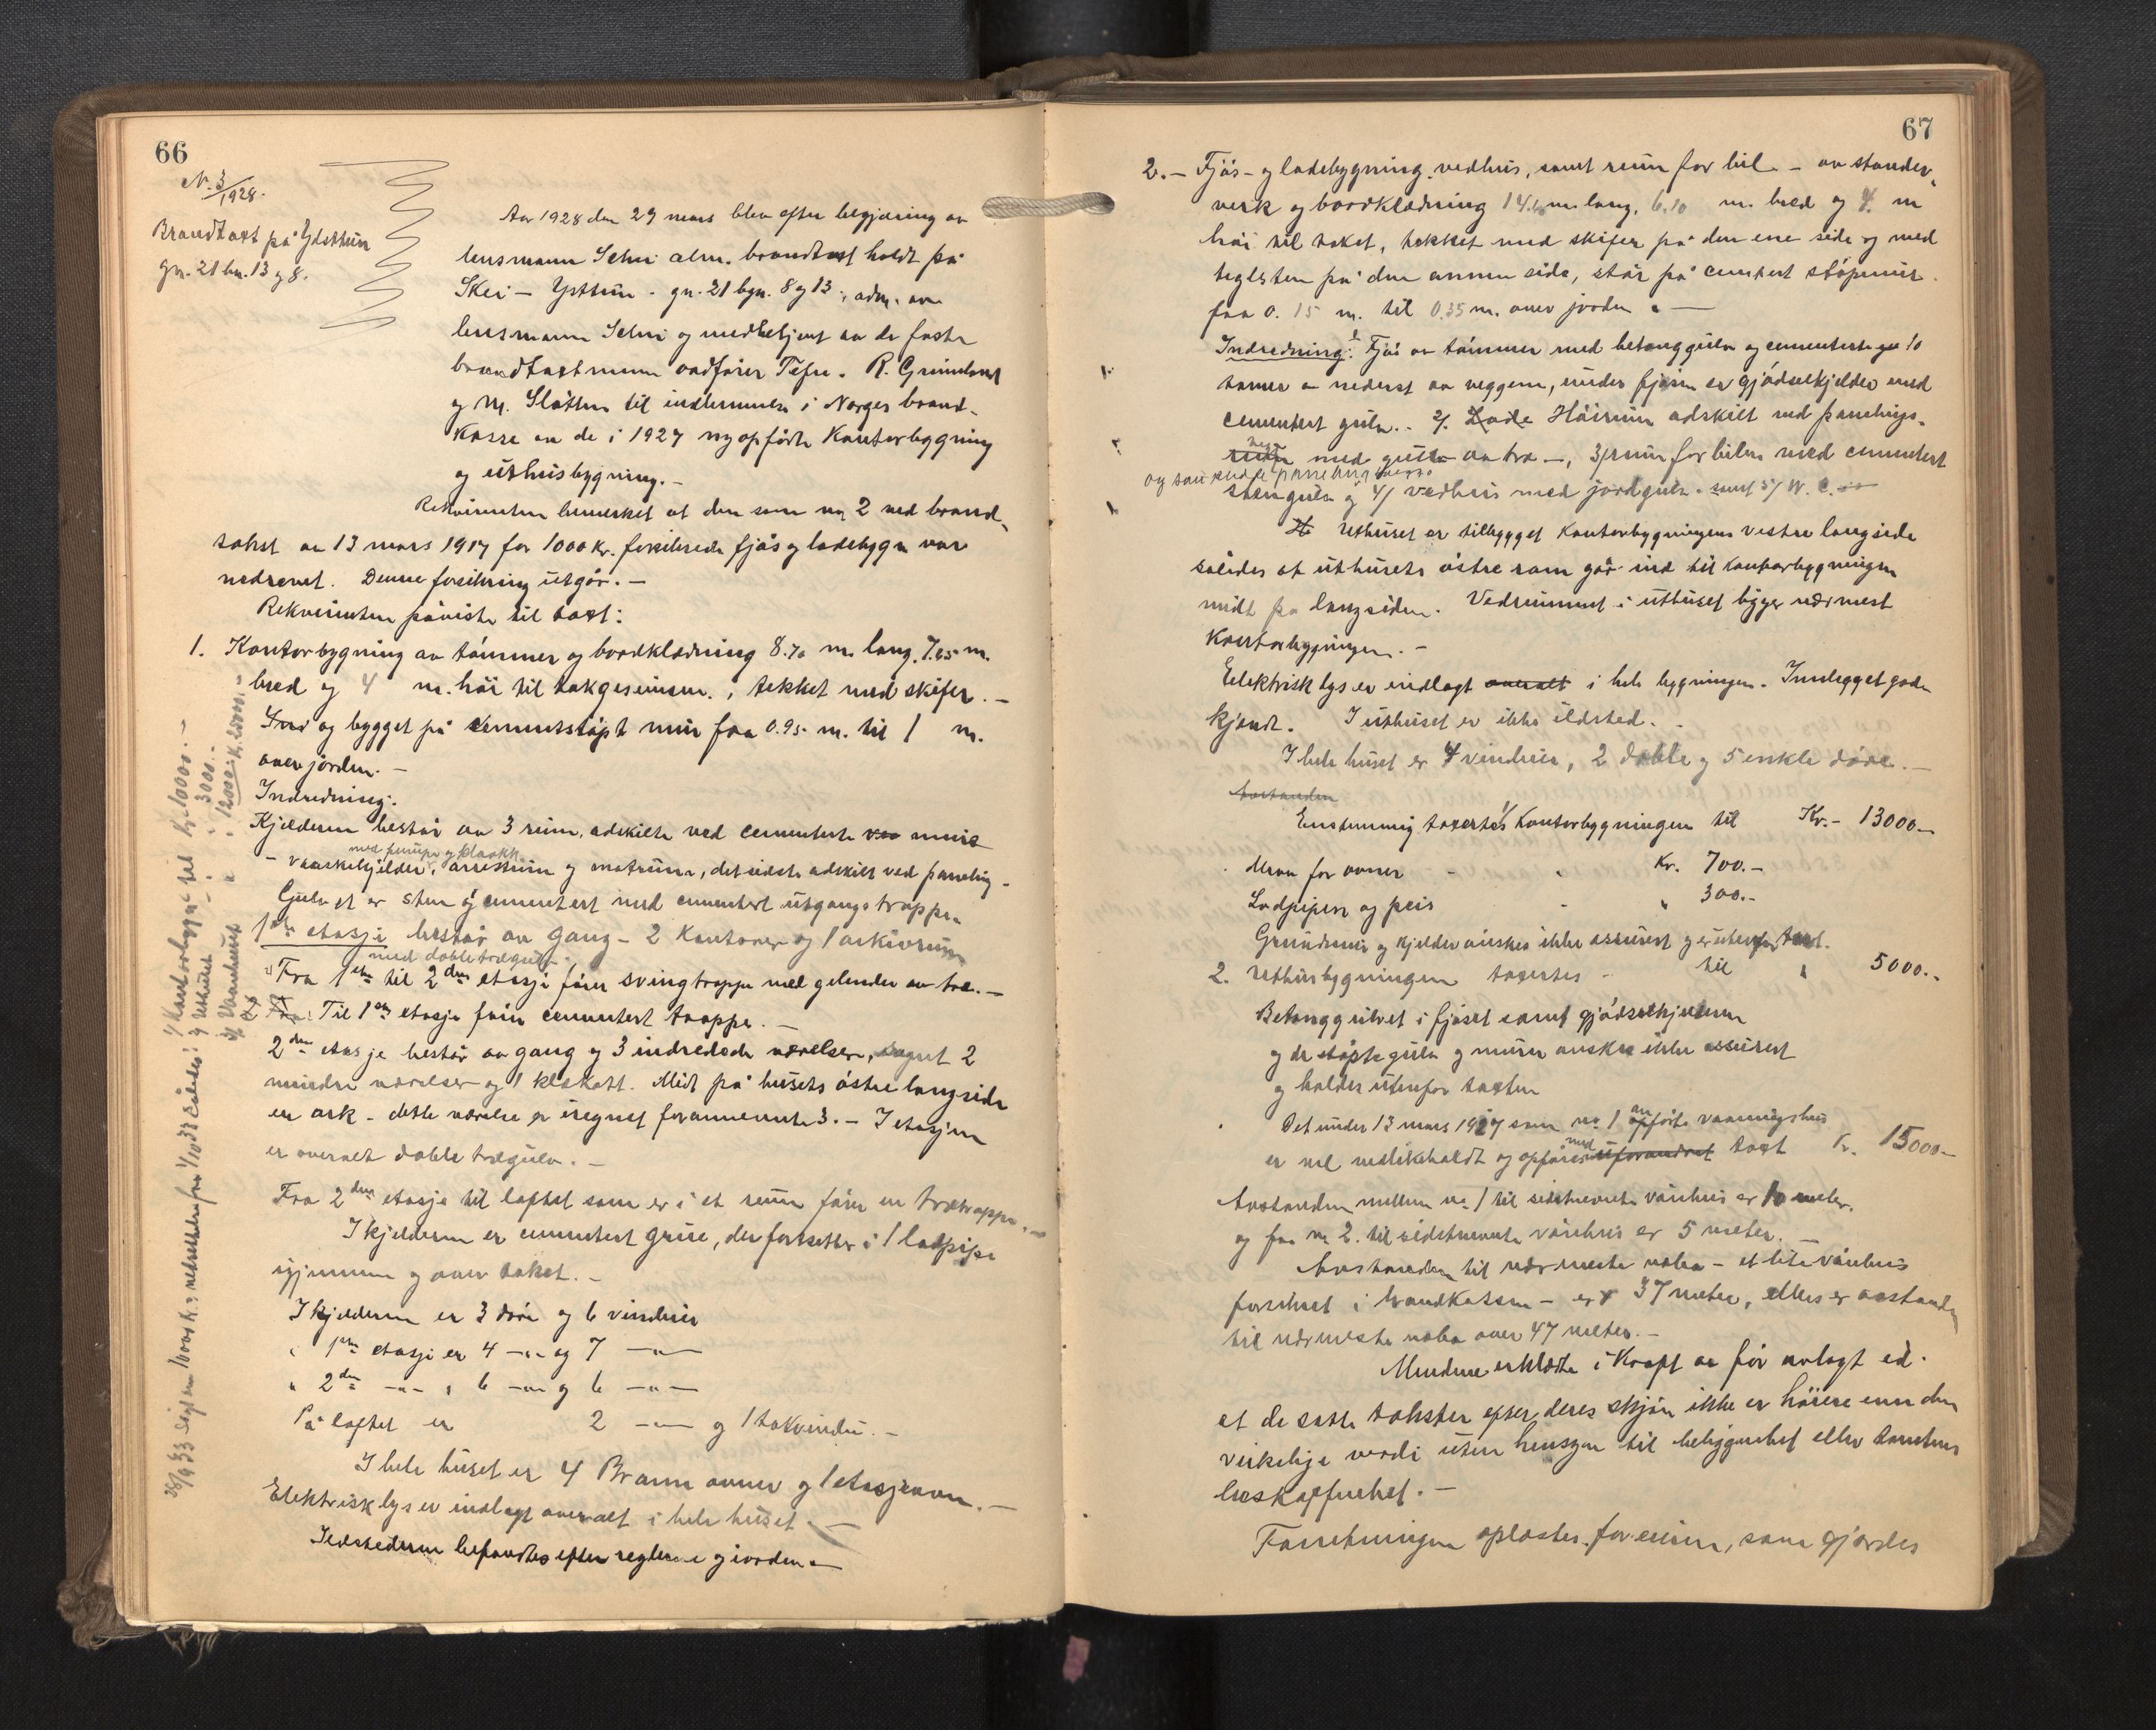 66
N. 3/1928.
Brandtaxt på Ysttun
gn. 21 bn. 13 og 8.
Aar 1928 den 29 mars blev efter begjæring av
lensmann Schei alm. brandtaxt holdt på
Skei – Ysttun – gn. 21 bgn. 8 og 13, adm. av
lensmann Schei og medbetjent av de faste
brandtaxtmenn R. Grunnland
og M. Slåtten til indlemmelse i Norges brand-
kasse av de i 1927 nyopførte Kontorbygning
og uthusbygning. –
Rekvirenten bemerket at den som nr 2 ved brand-
takst av 13 mars 1917 for 1000 Kr. forsikrede fjøs og ladebygn var
nedrevet. Denne forsikring utgår. –
Rekvirenten påviste til taxt:
1. Kontorbygning av tømmer og bordklædning 8.70 m. lang, 7.65 m.
bred og 4 m. høi til takgesimsen, tekket med skifer. –
og bygget på cementstøpt mur fra 0.95 m. til 1 m.
over jorden. –
Indredning:
Kjelderen består av 3 rum, adskilte ved cementerte mure
med pumpe og
– vaskekjelder, arrestrum og matrum, det sidste adskilt ved paneling –
Gulvet er sten og cementert med cementert utgangstrappe.
1ste etasje består av gang – 2 Kontorer og 1 arkivrum
med doble trægulv.
Fra 1ste til 2den etasje fører svingtrappe med gelender av træ. –
Til 1ste etasje fører cementert trappe. –
2den etasje består av gang og 3 indredede værelser, 2
mindre værelser og 1 kleskott. Midt på husets østre langside
en ark – dette værelse er iregnet forannevnte 3. – I etasjen
er overalt doble trægulv. –
Fra 2den etasje til loftet som er i et rum fører en trætrappe. –
I kjelderen er cementert grue, der fortsetter i 1 ladpipe
igjennem og over taket. –
I kjelderen er 3 døre og 6 vinduer
" 1ste etasje er 4 –"– og 7 –"–
" 2den –"– " 6 –"– og 6 –"–
På loftet er 2 –"– og 1 takvindu. –
I hele huset er 4 Bramm ovner og 1 etasjeovn. –
Elektrisk lys er indlagt overalt i hele huset. –
Ildstederne befandtes efter reglerne og i orden. –
28/9 33 nedsatt fra 1/10 33 således: 1/ Kontorbygn. til Kr. 10000. –
2/ Uthuset – " 3000. –
3/ Vaanhuset " 12000. – K. 25000. –
67
2. – Fjøs- og ladebygning, vedhus, samt rum for bil – av stander-
verk og bordklædning 14.60 m. lang, 6.10 m. bred og 4. m
høi til taket, tekket med skifer på den ene side og med
teglsten på den annen side, står på cementert støpemur
fra 0.15 m. til 0.35 m. over jorden. –
Indredning: 1/ Fjøs av tømmer med betonggulv og cementerte
nederst av veggene, under fjøsen er gjødselkjelder med
cementert gulv. – 2/ Høirum adskilt ved panelings-
med gulv av træ –, 3/ rum for bilen med cementert
og
stengulv og 4/ vedhus med jordgulv. samt 5/ W. C.
Uthuset er tilbygget Kontorbygningens vestre langside
således at uthusets østre røm går ind til kontorbygningen
midt på langsiden. Vedrummet i uthuset ligger nærmest
Kontorbygningen. –
Elektrisk lys er indlagt overalt i hele bygningen. Innlegget god-
kjendt. I uthuset er ikke ildsted. –
I hele huset er 4 vinduer, 2 doble og 5 enkle døre. –
Avstanden
Enstemmig taxertes 1/ Kontorbygningen til Kr. – 13000 –
Herav for ovner – " Kr. 700. –
Ladpipen og peis – " 300. –
Grundmur og kjelder ønskes ikke assurert og er utenfor taxt.
2. Uthusbygningen taxertes – til " 5000. –
Betonggulvet i fjøset samt gjødselkjelderen
og de støpte gulv og murer ønskes ikke assurert
og holdes utenfor taxten
Det under 13 mars 1917 som nr. 1 anførte vaaningshus
er vel vedlikeholdt og opføres med uforandret taxt Kr. 15000 –
Avstanden mellem nr. 1 til sidstnevnte vånhus er 10 meter.
og fra nr 2. til sidstnevnte vånhus er 5 meter. –
Avstanden til nærmeste nabo – et lite vånhus
forsikret i brandkassen – er 37 meter, ellers er avstanden
til nærmeste nabo over 47 meter. –
Mendene erklærte i Kraft av før avlagt ed.
at de satte takster efter deres skjøn ikke er høiere enn den
virkelige verdi uten hensyn til beliggenhet eller tomtens
beskaffenhet. –
Forretningen oplæstes foreinen, som gjordes